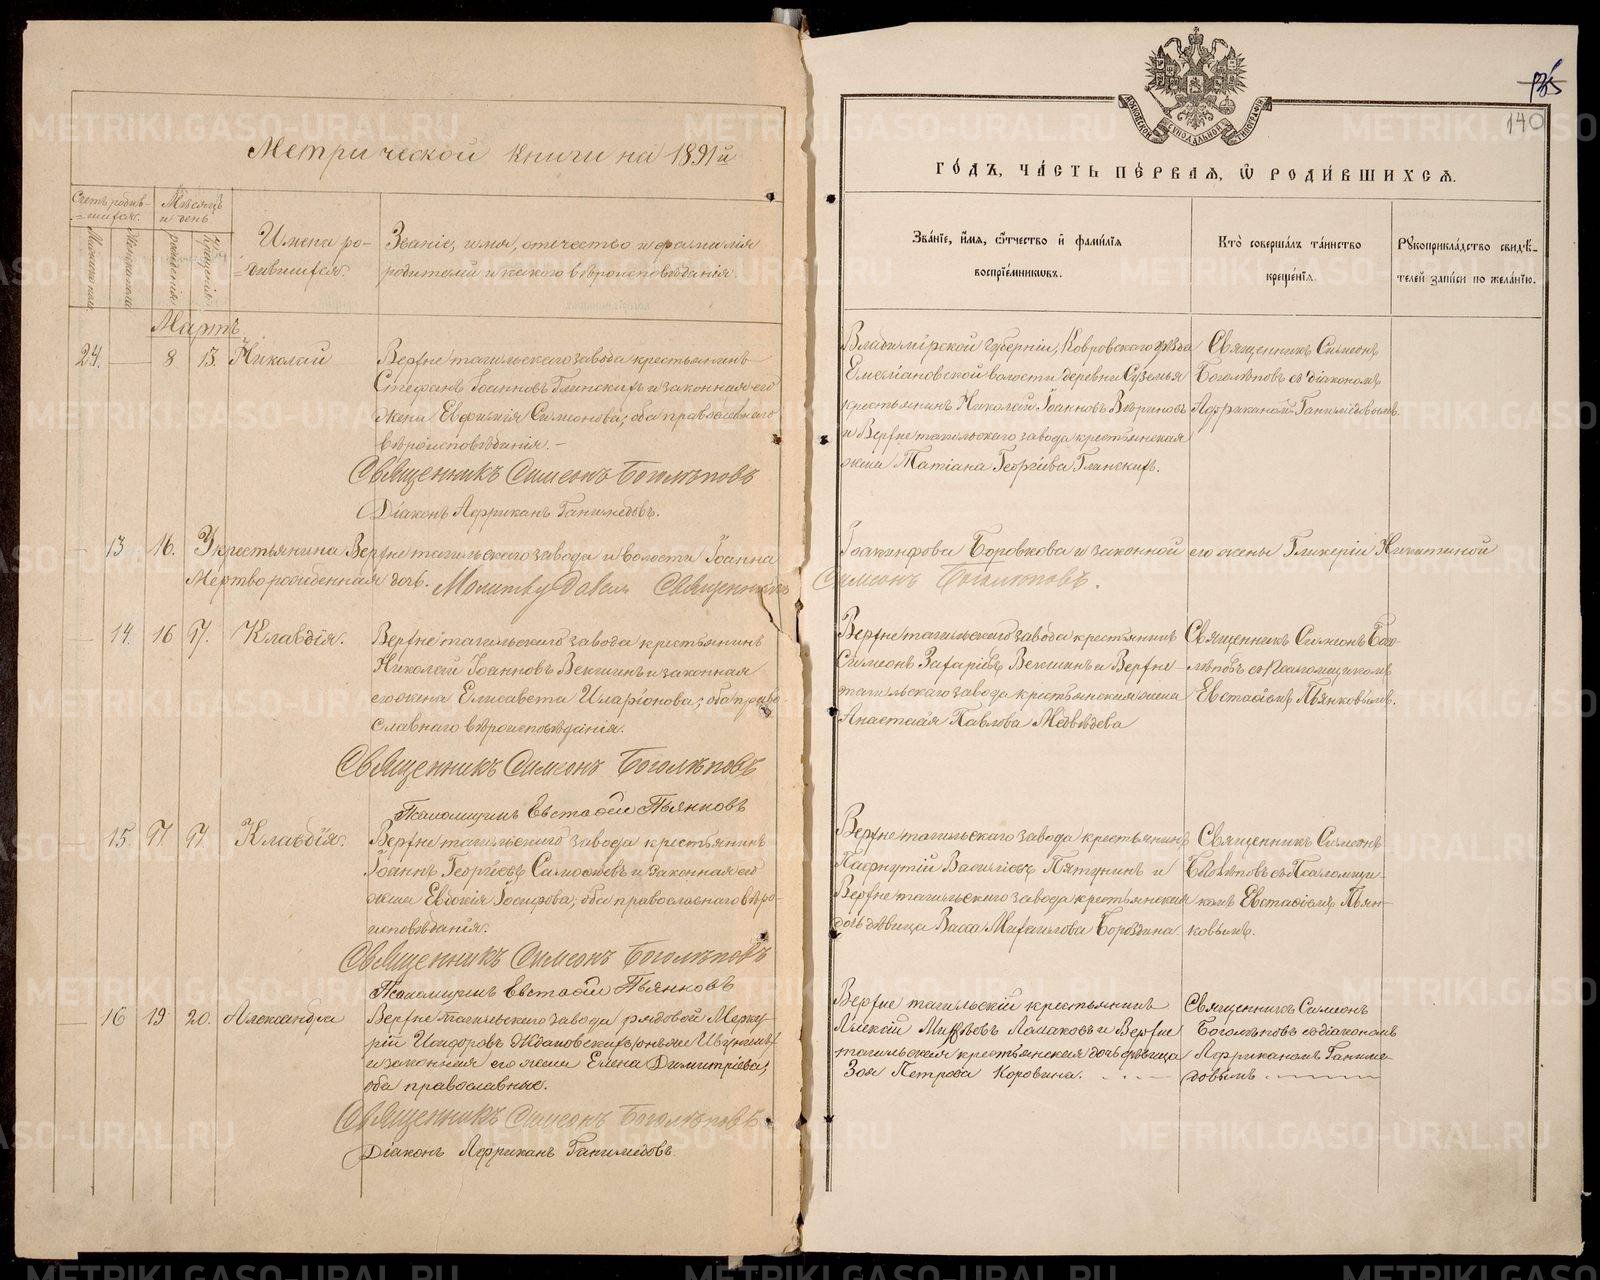 Метрической книги на 1891й
Счетъ родив-
шихся.
Мѣсяцъ
и день
Мужеска пола
Женска пола
рожденія
Крещенія
Имена ро-
дившихся.
Званіе, имя, отечество и фамилія
родителей и какого вѣроисповѣданія.
Мартъ
24. 8 13. Николай
Верхнетагильскаго завода крестьянинъ
Стефанъ Іоанновъ Глинскихъ и законная его
жена Евфимія Симеонова; оба православнаго
вѣроисповѣданія. –
Священникъ Симеонъ Боголѣповъ
Діаконъ Африканъ Ганимедовъ.
13 16. У крестьянина Верхнетагильскаго завода и волости Іоанна
Мертворожденная дочь. Молитву давалъ Священникъ
14. 16 17. Клавдія.
Верхнетагильскаго завода крестьянинъ
Николай Іоанновъ Векшинъ и законная
его жена Елисавета Иларіонова; оба право-
славнаго вѣроисповѣданія.
Священникъ Симеонъ Боголѣповъ
Псаломщикъ Евстафій Пьянковъ
15. 17. 17. Клавдія.
Верхнетагильскаго завода крестьянинъ
Іоаннъ Георгіевъ и законная его
жена Евдокія Іосифова; оба православнаго вѣро-
исповѣданія.
Священникъ Симеонъ Боголѣповъ
Псаломщикъ Евстафій Пьянковъ
16 19 20. Александра
Верхнетагильскаго завода рядовой Мерку-
рій Исидоровъ
и законная его жена Елена Димитріева,
оба православные.
Священникъ Симеонъ Боголѣповъ
Діаконъ Африканъ Ганимедовъ.
МОСКОВСКОЙ СѴНОДАЛЬНОЙ ТИПОГРАФІИ
140
ГО́ДЪ, ЧА́СТЬ ПЕ́РВАѦ, Ѿ РОДИ́ВШИХСѦ.
Зва́нїе, и҆́мѧ, ѻ҆́тчество и҆ фами́лїѧ
воспрїе́мникѡвъ.
Кто̀ соверша́лъ та́инство
креще́нїѧ.
Рꙋкоприкла́дство свидѣ́-
телей за́писи по жела́нїю.
Владимірской губерніи, Ковровскаго уѣзда
Емельяновской волости деревни
крестьянинъ Николай Іоанновъ
и Верхнетагильскаго завода крестьянская
жена Татіана Георгіева Глинскихъ.
Священникъ Симеонъ
Боголѣповъ съ діакономъ
Африканомъ Ганимедовымъ.
Іоакинфова Боровкова и законной его жены Гликеріи Никитиной
Симеонъ Боголѣповъ.
Верхнетагильскаго завода крестьянинъ
Симеонъ Захаріевъ Векшинъ и Верхне-
тагильскаго завода крестьянская жена
Анастасія Павлова Медвѣдева
Священникъ Симеонъ Бого-
лѣповъ съ Псаломщикомъ
Евстафіемъ Пьянковымъ.
Верхнетагильскаго завода крестьянинъ
Пафнутій Васильевъ Пятунинъ и
Верхнетагильскаго завода крестьянская
дочь дѣвица Васса Михаилова Бороздина.
Священникъ Симеонъ
Боголѣповъ съ Псаломщи-
комъ Евстафіемъ Пьян-
ковымъ.
Верхнетагильскій крестьянинъ
Алексій Ломаковъ и Верхне
тагильская крестьянская дочь дѣвица
Зоя Петрова Коровина.
Священникъ Симеонъ
Боголѣповъ съ діакономъ
Африканомъ Ганиме-
довымъ.
METRIKI.GASO-URAL.RU